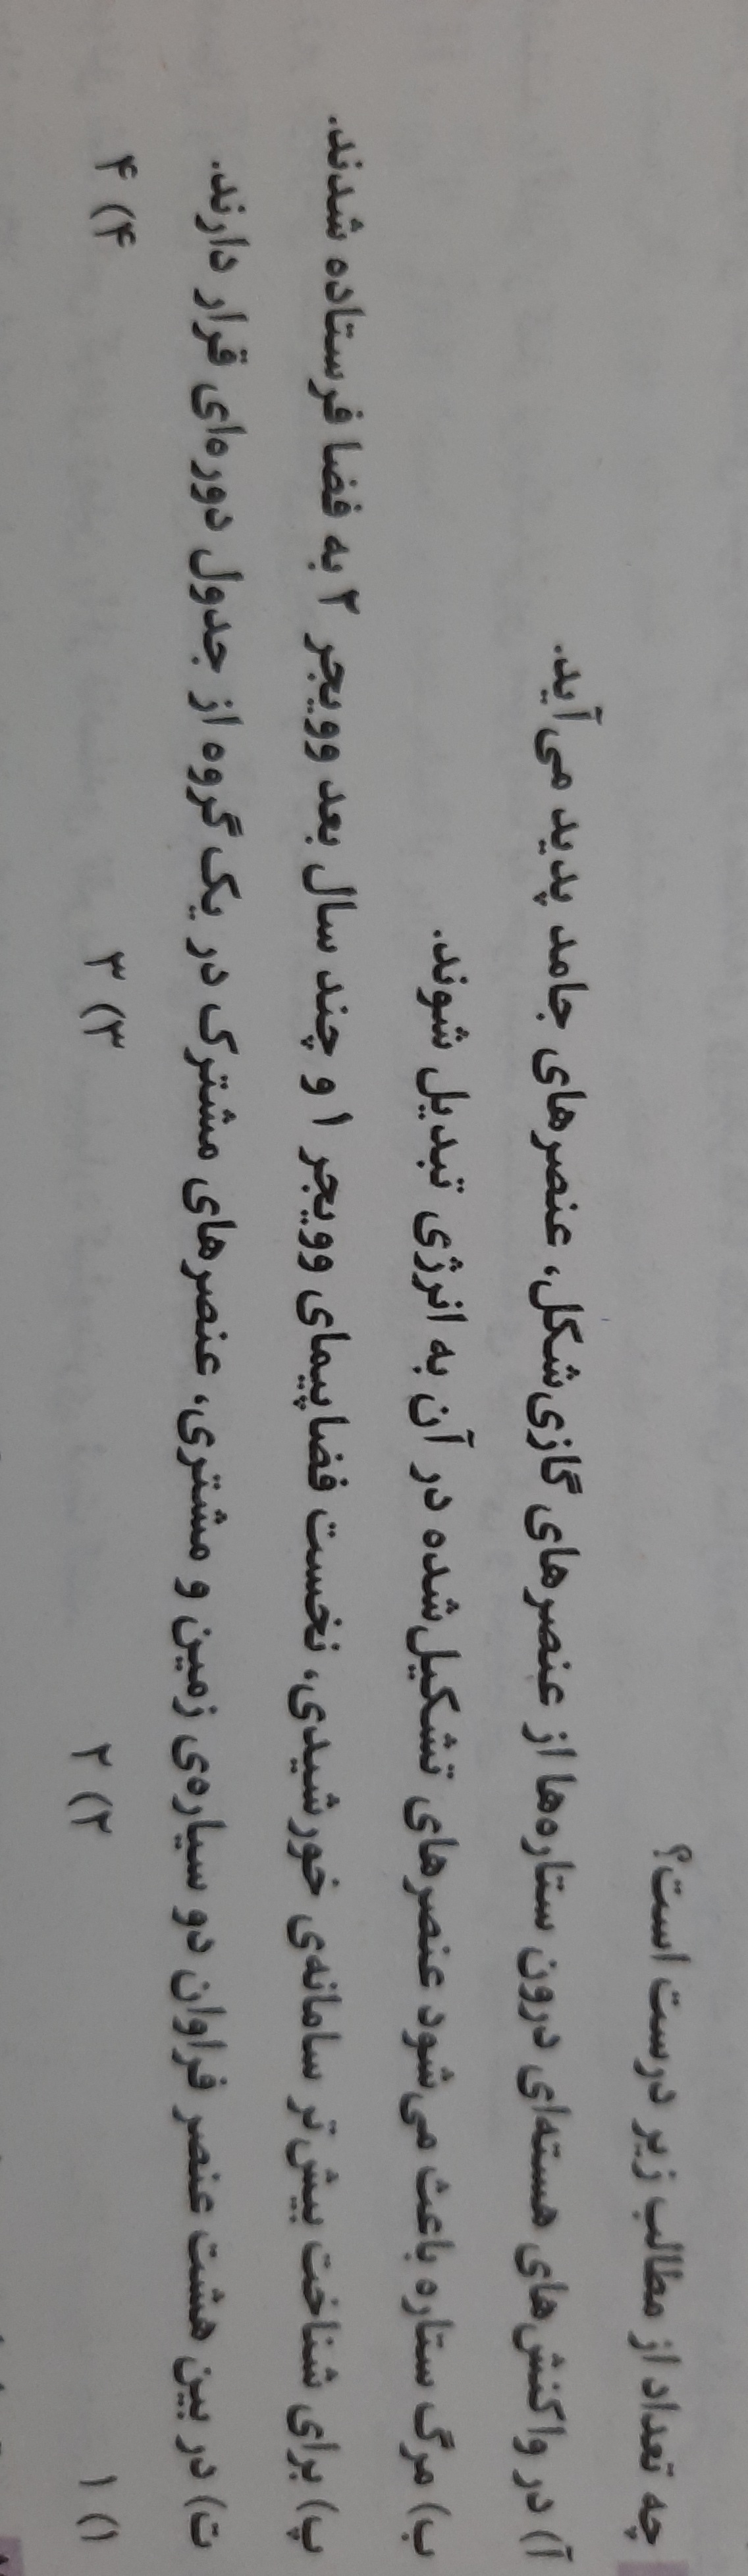 چه تعداد از مطالب زیر درست است؟
آ) در واکنش‌های هسته‌ای درون ستاره‌ها از عنصرهای گازی‌شکل، عنصرهای جامد پدید می‌آید.
ب) مرگ ستاره باعث می‌شود عنصرهای تشکیل‌شده در آن به انرژی تبدیل شوند.
پ) برای شناخت بیش‌تر سامانه‌ی خورشیدی، نخست فضاپیمای وویجر ۱ و چند سال بعد وویجر ۲ به فضا فرستاده شدند.
ت) در بین هشت عنصر فراوان دو سیاره‌ی زمین و مشتری، عنصرهای مشترک در یک گروه از جدول دوره‌ای قرار دارند.
۱) ۱ ۲) ۲ ۳) ۳ ۴) ۴